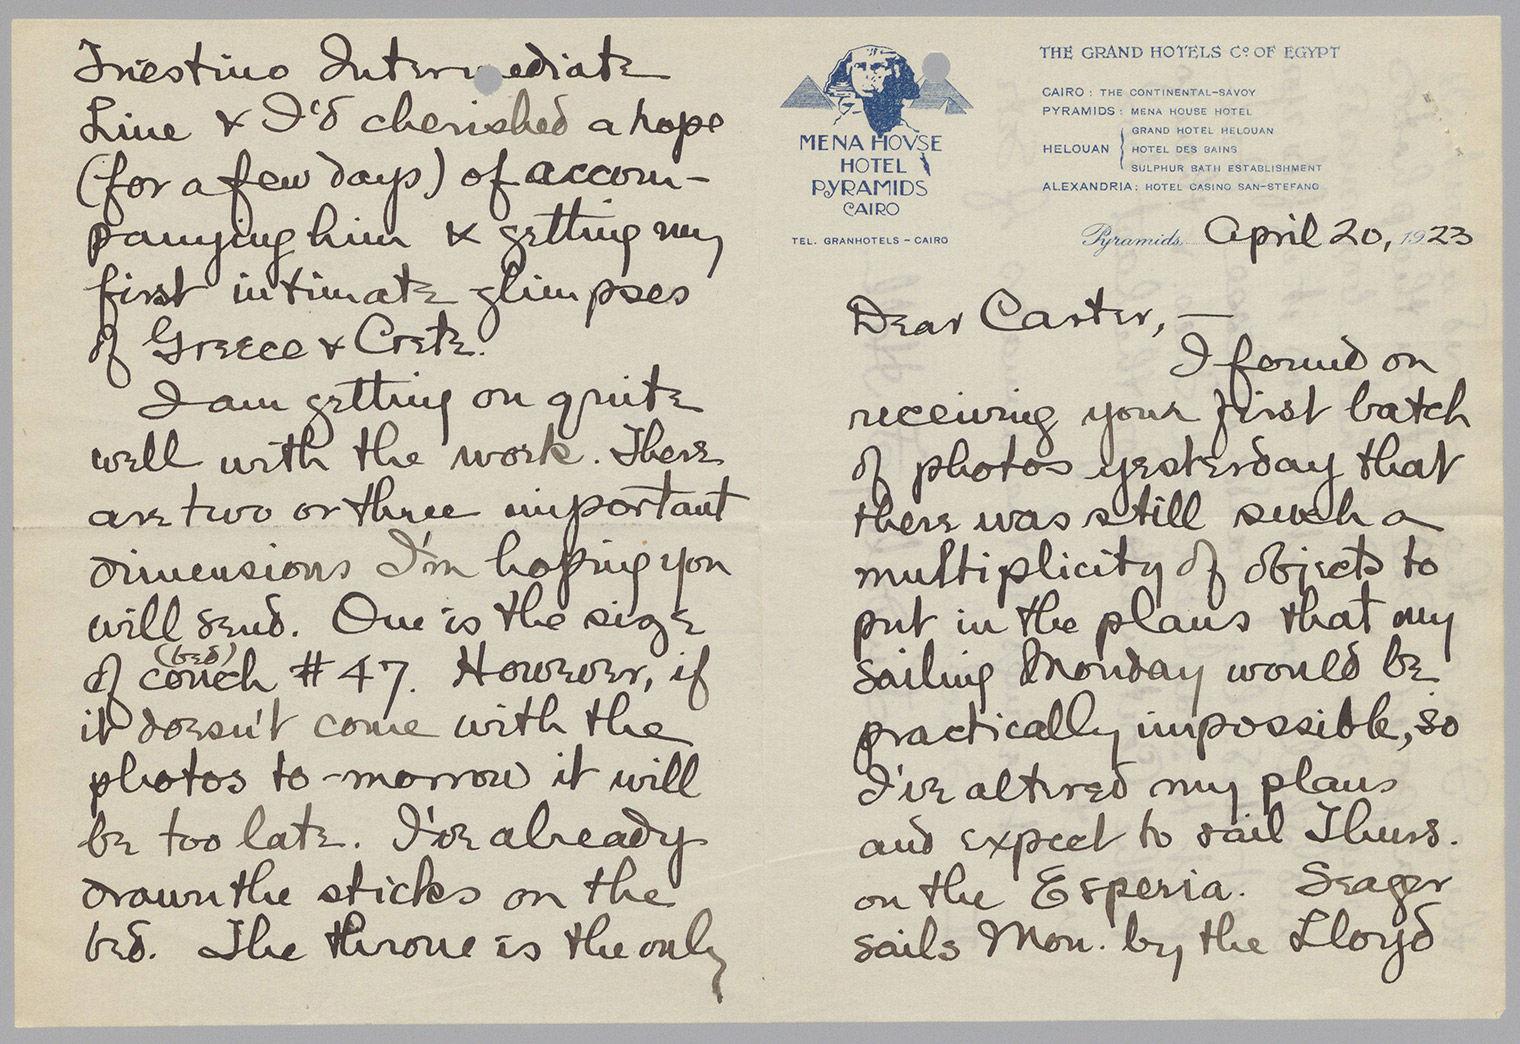 MENA HOVSE
HOTEL
PYRAMIDS
CAIRO
TEL. GRANHOTELS – CAIRO
THE GRAND HOTELS Cº OF EGYPT
CAIRO : THE CONTINENTAL-SAVOY
PYRAMIDS : MENA HOUSE HOTEL
GRAND HOTEL HELOUAN
HELOUAN { HOTEL DES BAINS
SULPHUR BATH ESTABLISHMENT
ALEXANDRIA : HOTEL CASINO SAN-STEFANO
Pyramids April 20, 1923
Dear Carter, —
I found on
receiving your first batch
of photos yesterday that
there was still such a
multiplicity of objects to
put in the plans that my
sailing Monday would be
practically impossible, so
I've altered my plans
and expect to sail Thurs.
on the Esperia. Seager
sails Mon. by the Lloyd
Triestino Intermediate
Line & I'd cherished a hope
(for a few days) of accom-
panying him & getting my
first intimate glimpses
of Greece & Crete.
I am getting on quite
well with the work. There
are two or three important
dimensions I'm hoping you
will send. One is the size
(bed)
of couch # 47. However, if
it doesn't come with the
photos to-morrow it will
be too late. I've already
drawn the sticks on the
bed. The throne is the only